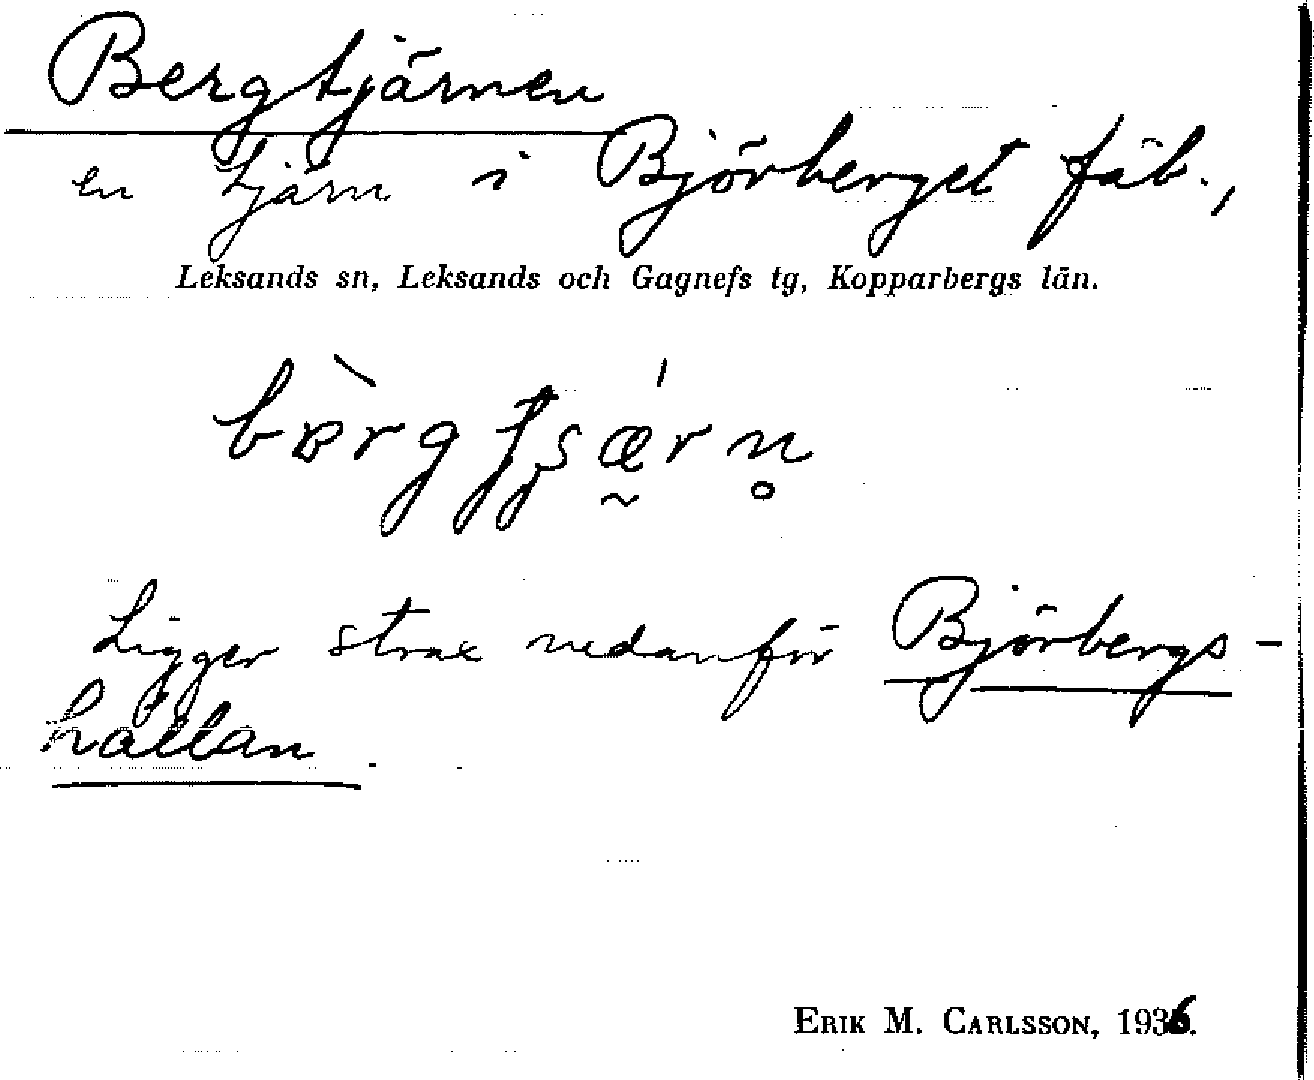 Bergtjärnen
en tjärn i Björberget fäb.,
Leksands sn, Leksands och Gagnefs tg, Kopparbergs län.
Ligger strax nedanför Björbergs-
hällan.
ERIK M. CARLSSON, 1936.